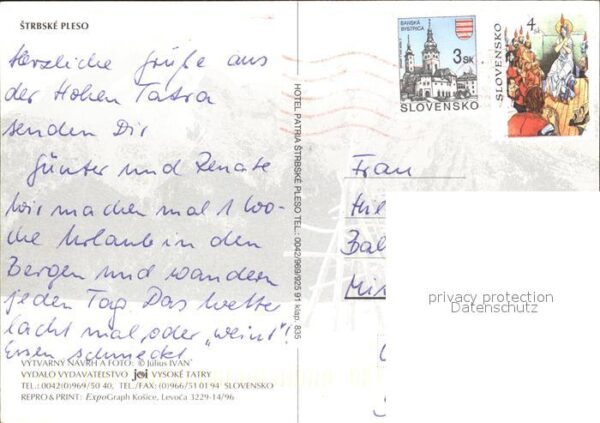 ŠTRBSKÉ PLESO
Herzliche Grüße aus
der Hohen Tatra
senden Dir
Günter und Renate
Wir machen mal 1 Wo-
che Urlaub in den
Bergen und wandern
jeden Tag Das Wetter
lacht mal, oder „weint"!
Essen schmeckt
VÝTVARNÝ NÁVRH A FOTO: © Július IVAN
VYDALO VYDAVATEĽSTVO joi VYSOKÉ TATRY
TEL.: 0042(0)969/50 40, TEL./FAX: (0)966/51 01 94 SLOVENSKO
REPRO & PRINT: ExpoGraph Košice, Levoča 3229-14/96
HOTEL PATRIA ŠTRBSKÉ PLESO TEL.: 0042/969/925 91 klap. 835
BANSKÁ
BYSTRICA
3 SK
SLOVENSKO
4
SLOVENSKO
Frau
privacy protection
Datenschutz